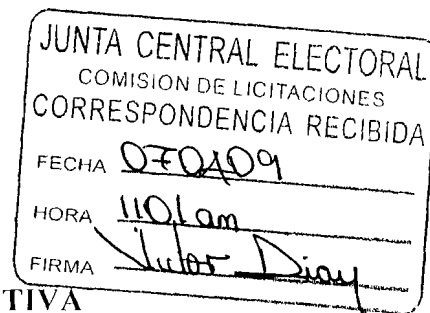 JUNTA CENTRAL ELECTORAL
COMISION DE LICITACIONES
CORRESPONDENCIA RECIBIDA
FECHA 070409
HORA 1101am
FIRMA Victor Diaz
TIVA